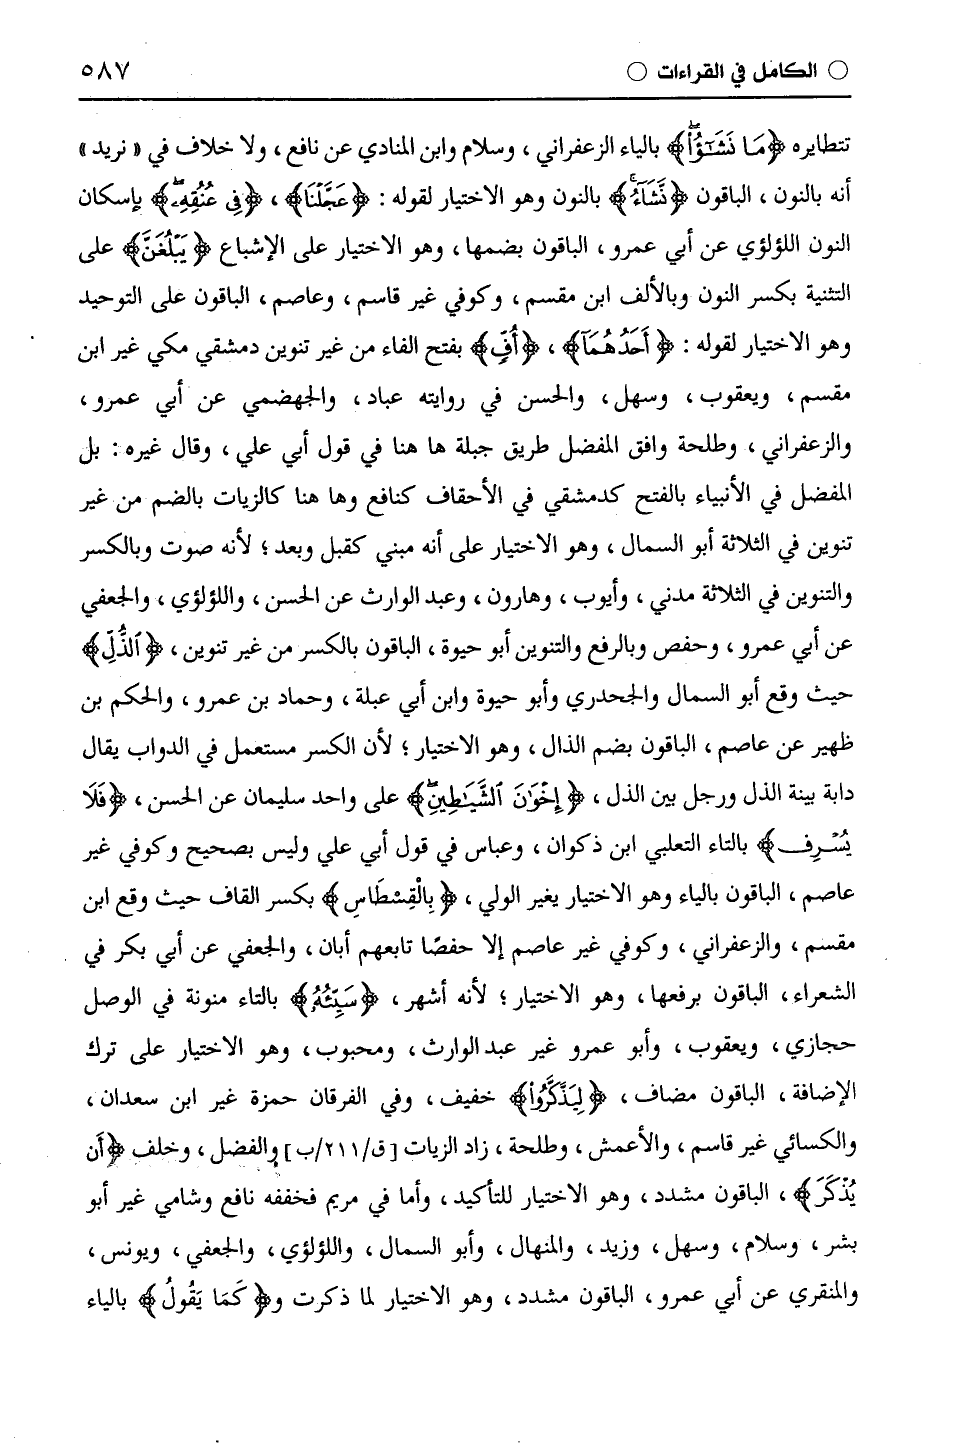 ○ الكامل في القراءات ○ ٥٨٧
تتطايره ﴿مَا نَشَـٰٓؤُا۟ۖ﴾ بالياء الزعفراني، وسلام وابن المنادي عن نافع، ولا خلاف في «نريد»
أنه بالنون، الباقون ﴿نَشَآءُۚ﴾ بالنون وهو الاختيار لقوله: ﴿عَجَّلْنَا﴾، ﴿فِى عُنُقِهِۦۖ﴾ بإسكان
النون اللؤلؤي عن أبي عمرو، الباقون بضمها، وهو الاختيار على الإشباع ﴿يَبْلُغَنَّ﴾ على
التثنية بكسر النون وبالألف ابن مقسم، وكوفي غير قاسم، وعاصم، الباقون على التوحيد
وهو الاختيار لقوله: ﴿أَحَدُهُمَآ﴾، ﴿أُفٍّ﴾ بفتح الفاء من غير تنوين دمشقي مكي غير ابن
مقسم، ويعقوب، وسهل، والحسن في روايته عباد، والجهضمي عن أبي عمرو،
والزعفراني، وطلحة وافق المفضل طريق جبلة ها هنا في قول أبي علي، وقال غيره: بل
المفضل في الأنبياء بالفتح كدمشقي في الأحقاف كنافع وها هنا كالزيات بالضم من غير
تنوين في الثلاثة أبو السمال، وهو الاختيار على أنه مبني كقبل وبعد؛ لأنه صوت وبالكسر
والتنوين في الثلاثة مدني، وأيوب، وهارون، وعبد الوارث عن الحسن، واللؤلؤي، والجعفي
عن أبي عمرو، وحفص وبالرفع والتنوين أبو حيوة، الباقون بالكسر من غير تنوين، ﴿ٱلذُّلِّ﴾
حيث وقع أبو السمال والجحدري وأبو حيوة وابن أبي عبلة، وحماد بن عمرو، والحكم بن
ظهير عن عاصم، الباقون بضم الذال، وهو الاختيار؛ لأن الكسر مستعمل في الدواب يقال
دابة بينة الذل ورجل بين الذل، ﴿إِخْوَٰنَ ٱلشَّيَـٰطِينِۖ﴾ على واحد سليمان عن الحسن، ﴿فَلَا
يُسْرِف﴾ بالتاء التعلبي ابن ذكوان، وعباس في قول أبي علي وليس بصحيح وكوفي غير
عاصم، الباقون بالياء وهو الاختيار يغير الولي، ﴿بِالْقِسْطَاسِ﴾ بكسر القاف حيث وقع ابن
مقسم، والزعفراني، وكوفي غير عاصم إلا حفصًا تابعهم أبان، والجعفي عن أبي بكر في
الشعراء، الباقون برفعها، وهو الاختيار؛ لأنه أشهر، ﴿سَيِّئُهُۥ﴾ بالتاء منونة في الوصل
حجازي، ويعقوب، وأبو عمرو غير عبد الوارث، ومحبوب، وهو الاختيار على ترك
الإضافة، الباقون مضاف، ﴿لِيَذَّكَّرُوا۟﴾ خفيف، وفي الفرقان حمزة غير ابن سعدان،
والكسائي غير قاسم، والأعمش، وطلحة، زاد الزيات [ق/٢١١/ب] والفضل، وخلف ﴿أَن
يُذْكَرَ﴾، الباقون مشدد، وهو الاختيار للتأكيد، وأما في مريم فخففه نافع وشامي غير أبو
بشر، وسلام، وسهل، وزيد، والمنهال، وأبو السمال، واللؤلؤي، والجعفي، ويونس،
والمنقري عن أبي عمرو، الباقون مشدد، وهو الاختيار لما ذكرت و﴿كَمَا يَقُولُ﴾ بالياء